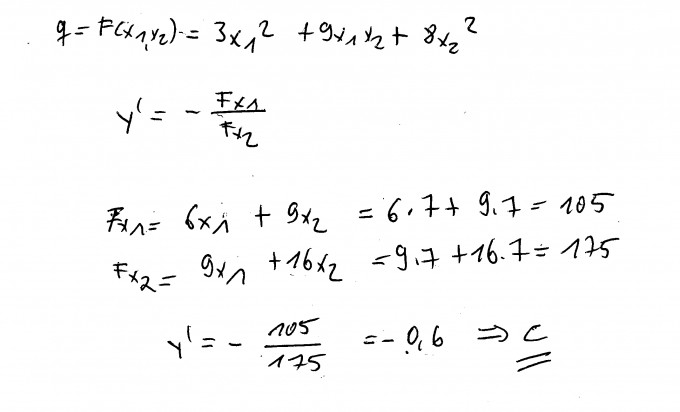 q = F(x₁,x₂) = 3x₁² + 9x₁x₂ + 8x₂²
y' = - Fx1/Fx2
Fx1 = 6x1 + 9x2 = 6.7 + 9.7 = 105
Fx2 = 9x1 + 16x2 = 9.7 + 16.7 = 175
y' = - 105/175 = - 0,6 ⇒ C